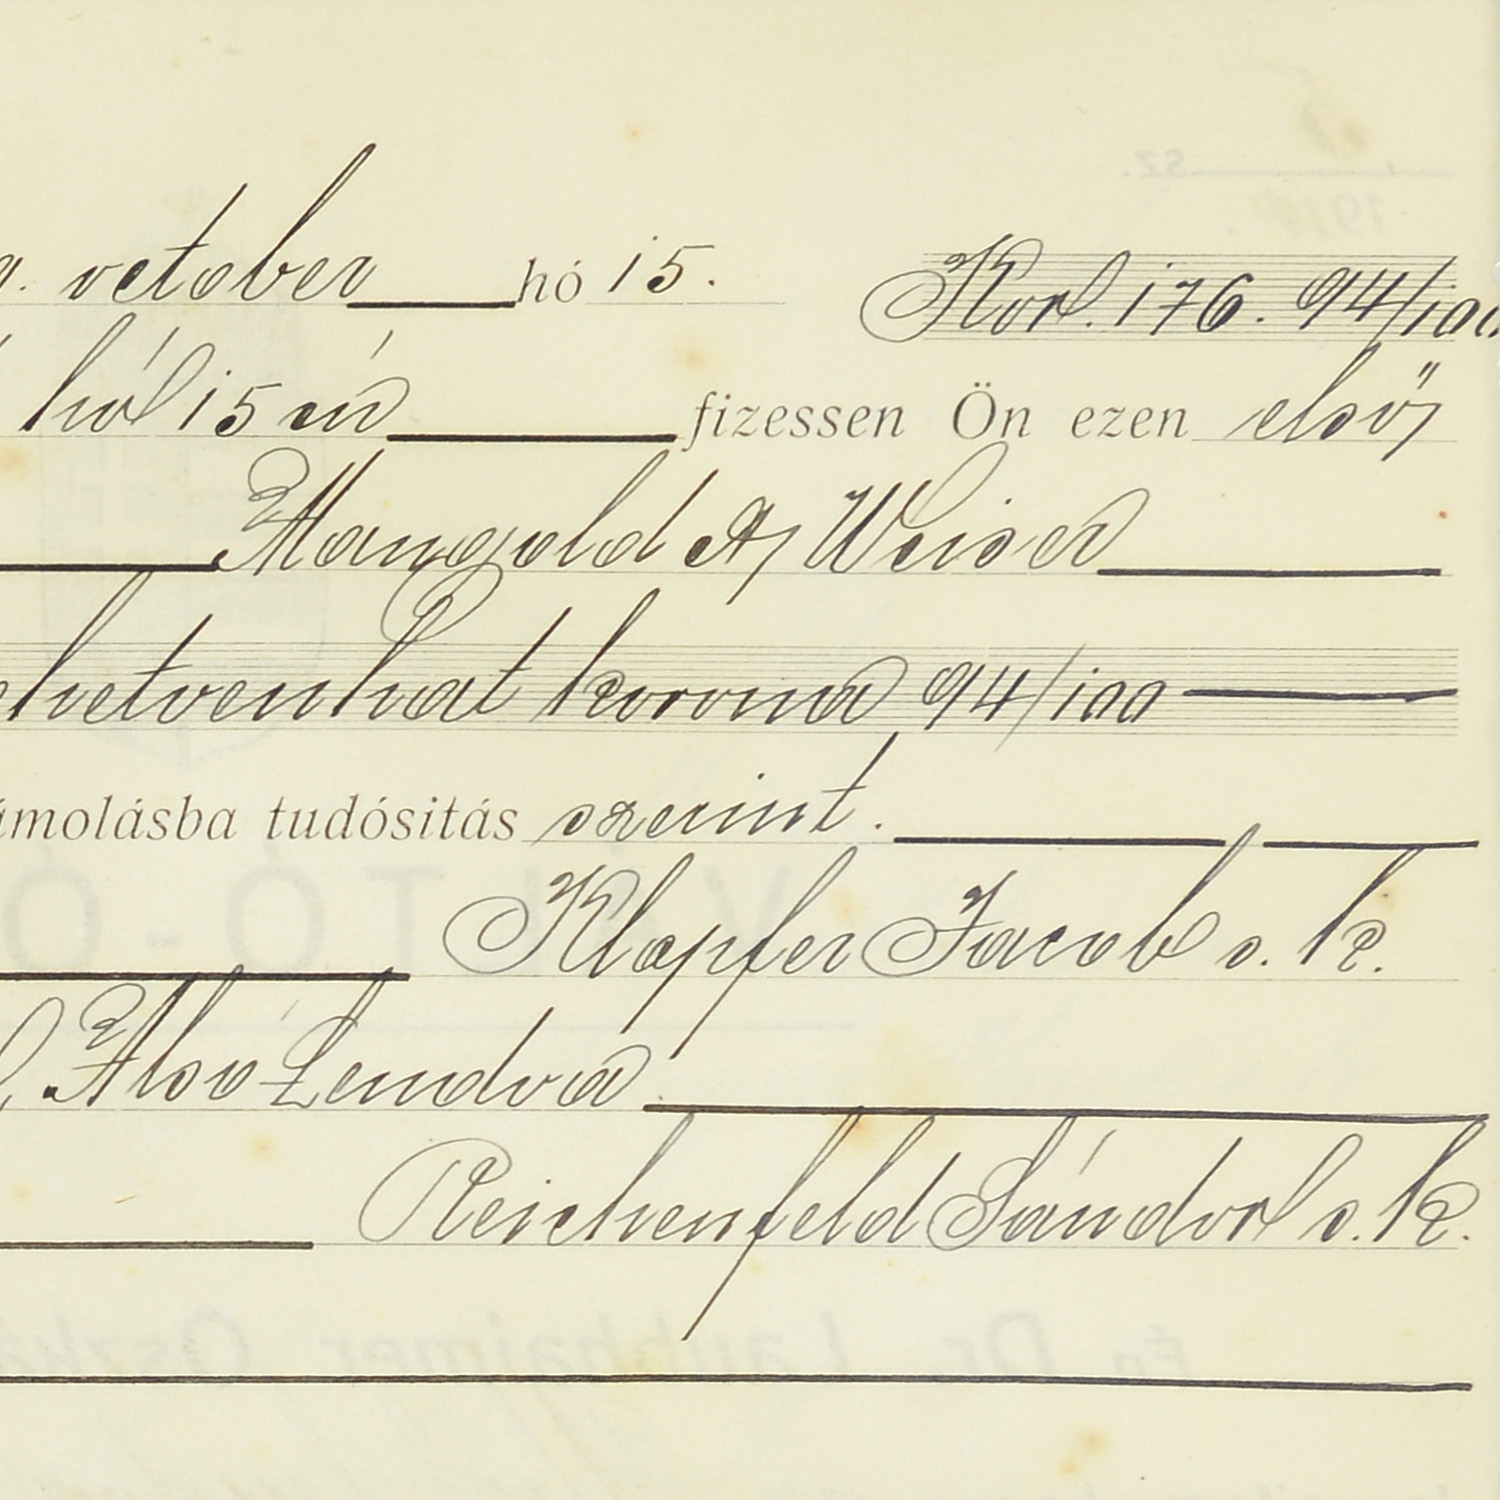 october hó 15. Kor. 176. 94/100
hó 15 én fizessen Ön ezen első
Mangold A, Weiser
hetvenhat korona 94/100
ámolásba tudósitás szerint.
Klapfer Jacob s. k.
Alsó Lendva
Reichenfeld Sándor s. k.